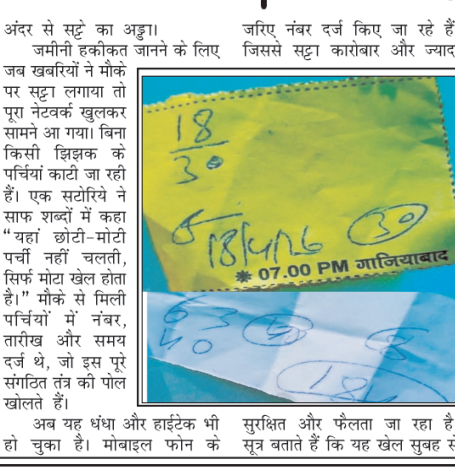 अंदर से सट्टे का अड्डा।
जमीनी हकीकत जानने के लिए
जब खबरियों ने मौके
पर सट्टा लगाया तो
पूरा नेटवर्क खुलकर
सामने आ गया। बिना
किसी झिझक के
पर्चियां काटी जा रही
हैं। एक सटोरिये ने
साफ शब्दों में कहा
“यहां छोटी-मोटी
पर्ची नहीं चलती,
सिर्फ मोटा खेल होता
है।” मौके से मिली
पर्चियों में नंबर,
तारीख और समय
दर्ज थे, जो इस पूरे
संगठित तंत्र की पोल
खोलते हैं।
अब यह धंधा और हाईटेक भी
हो चुका है। मोबाइल फोन के
जरिए नंबर दर्ज किए जा रहे हैं
जिससे सट्टा कारोबार और ज्याद
18
30
18/4/26
30
07.00 PM गाजियाबाद
18
सुरक्षित और फैलता जा रहा है
सूत्र बताते हैं कि यह खेल सुबह से